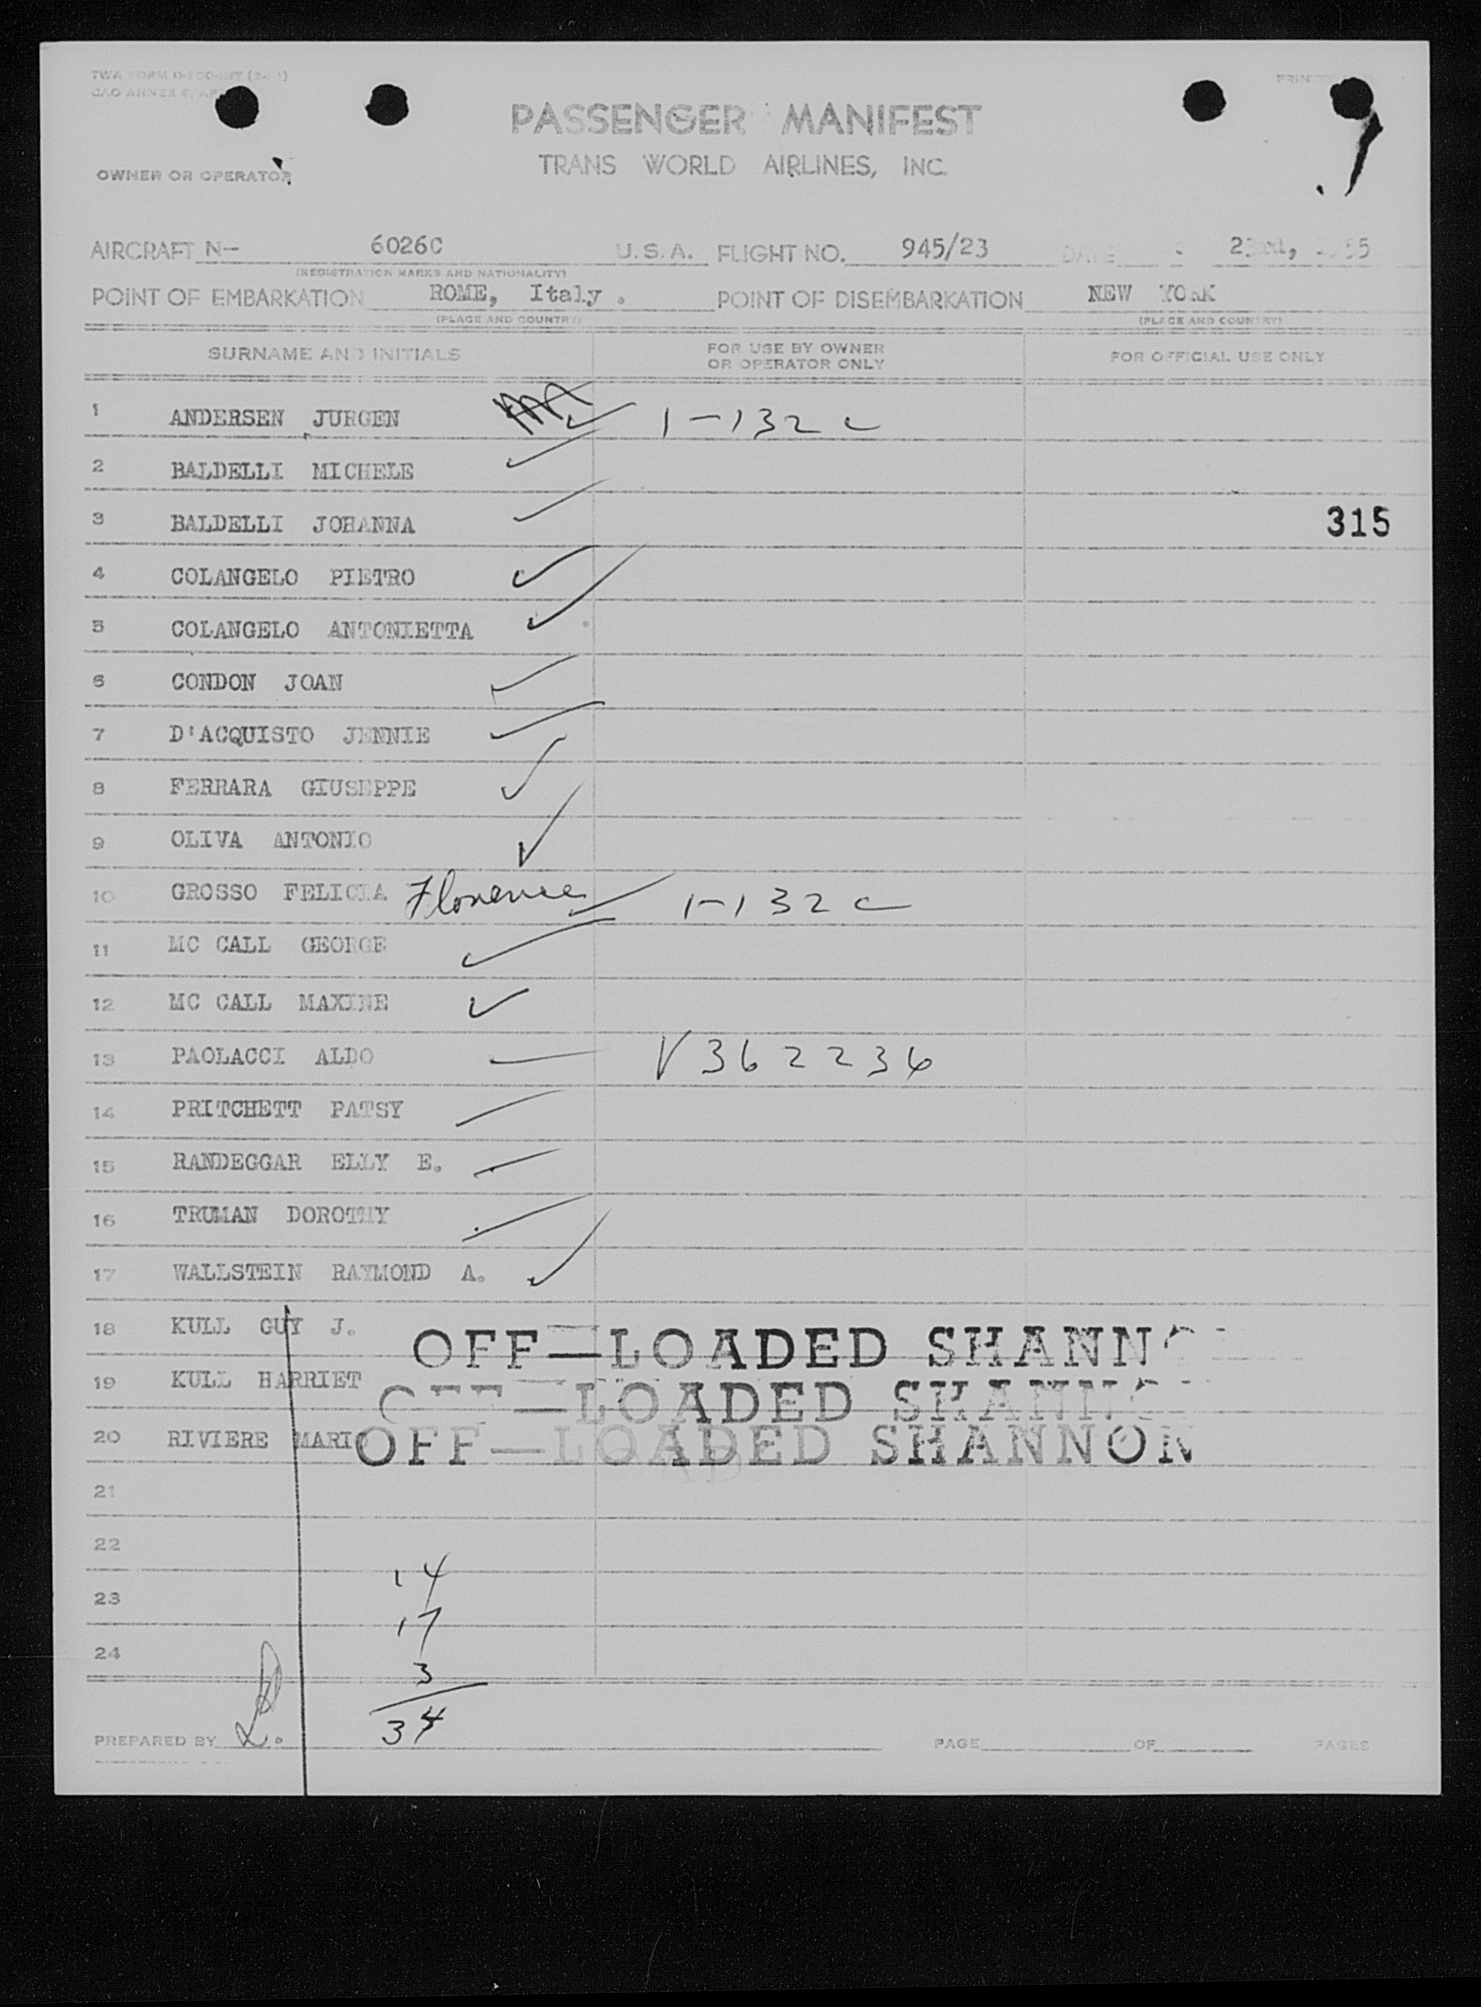 PASSENGER MANIFEST
TRANS WORLD AIRLINES, INC.
OWNER OR OPERATOR
AIRCRAFT N- 6026C U.S.A. FLIGHT NO. 945/23 DATE 23rd, 55
(REGISTRATION MARKS AND NATIONALITY)
POINT OF EMBARKATION ROME, Italy. POINT OF DISEMBARKATION NEW YORK
(PLACE AND COUNTRY) (PLACE AND COUNTRY)
SURNAME AND INITIALS FOR USE BY OWNER OR OPERATOR ONLY FOR OFFICIAL USE ONLY
1 ANDERSEN JURGEN 1-132 c
2 BALDELLI MICHELE
3 BALDELLI JOHANNA 315
4 COLANGELO PIETRO
5 COLANGELO ANTONIETTA
6 CONDON JOAN
7 D'ACQUISTO JENNIE
8 FERRARA GIUSEPPE
9 OLIVA ANTONIO
10 GROSSO FELICIA Florence 1-132 c
11 MC CALL GEORGE
12 MC CALL MAXINE
13 PAOLACCI ALDO V362236
14 PRITCHETT PATSY
15 RANDEGGAR ELLY E.
16 TRUMAN DOROTHY
17 WALLSTEIN RAYMOND A.
18 KULL GUY J. OFF-LOADED SHANNON
19 KULL HARRIET OFF-LOADED SHANNON
20 RIVIERE MARIO OFF-LOADED SHANNON
21
22
14
23
17
24
3
34
PREPARED BY PAGE OF PAGES